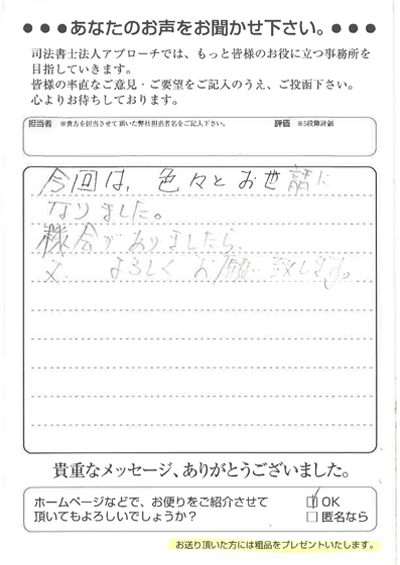 ●●●あなたのお声をお聞かせ下さい。●●●
司法書士法人アプローチでは、もっと皆様のお役に立つ事務所を
目指していきます。
皆様の率直なご意見・ご要望をご記入のうえ、ご投函下さい。
心よりお待ちしております。
担当者 ※貴方を担当させて頂いた弊社担当者名をご記入下さい。 評価 ※5段階評価
今回は、色々とお世話に
なりました。
機会がありましたら、
又 よろしくお願い致します。
貴重なメッセージ、ありがとうございました。
ホームページなどで、お便りをご紹介させて
頂いてもよろしいでしょうか?
OK
匿名なら
お送り頂いた方には粗品をプレゼントいたします。